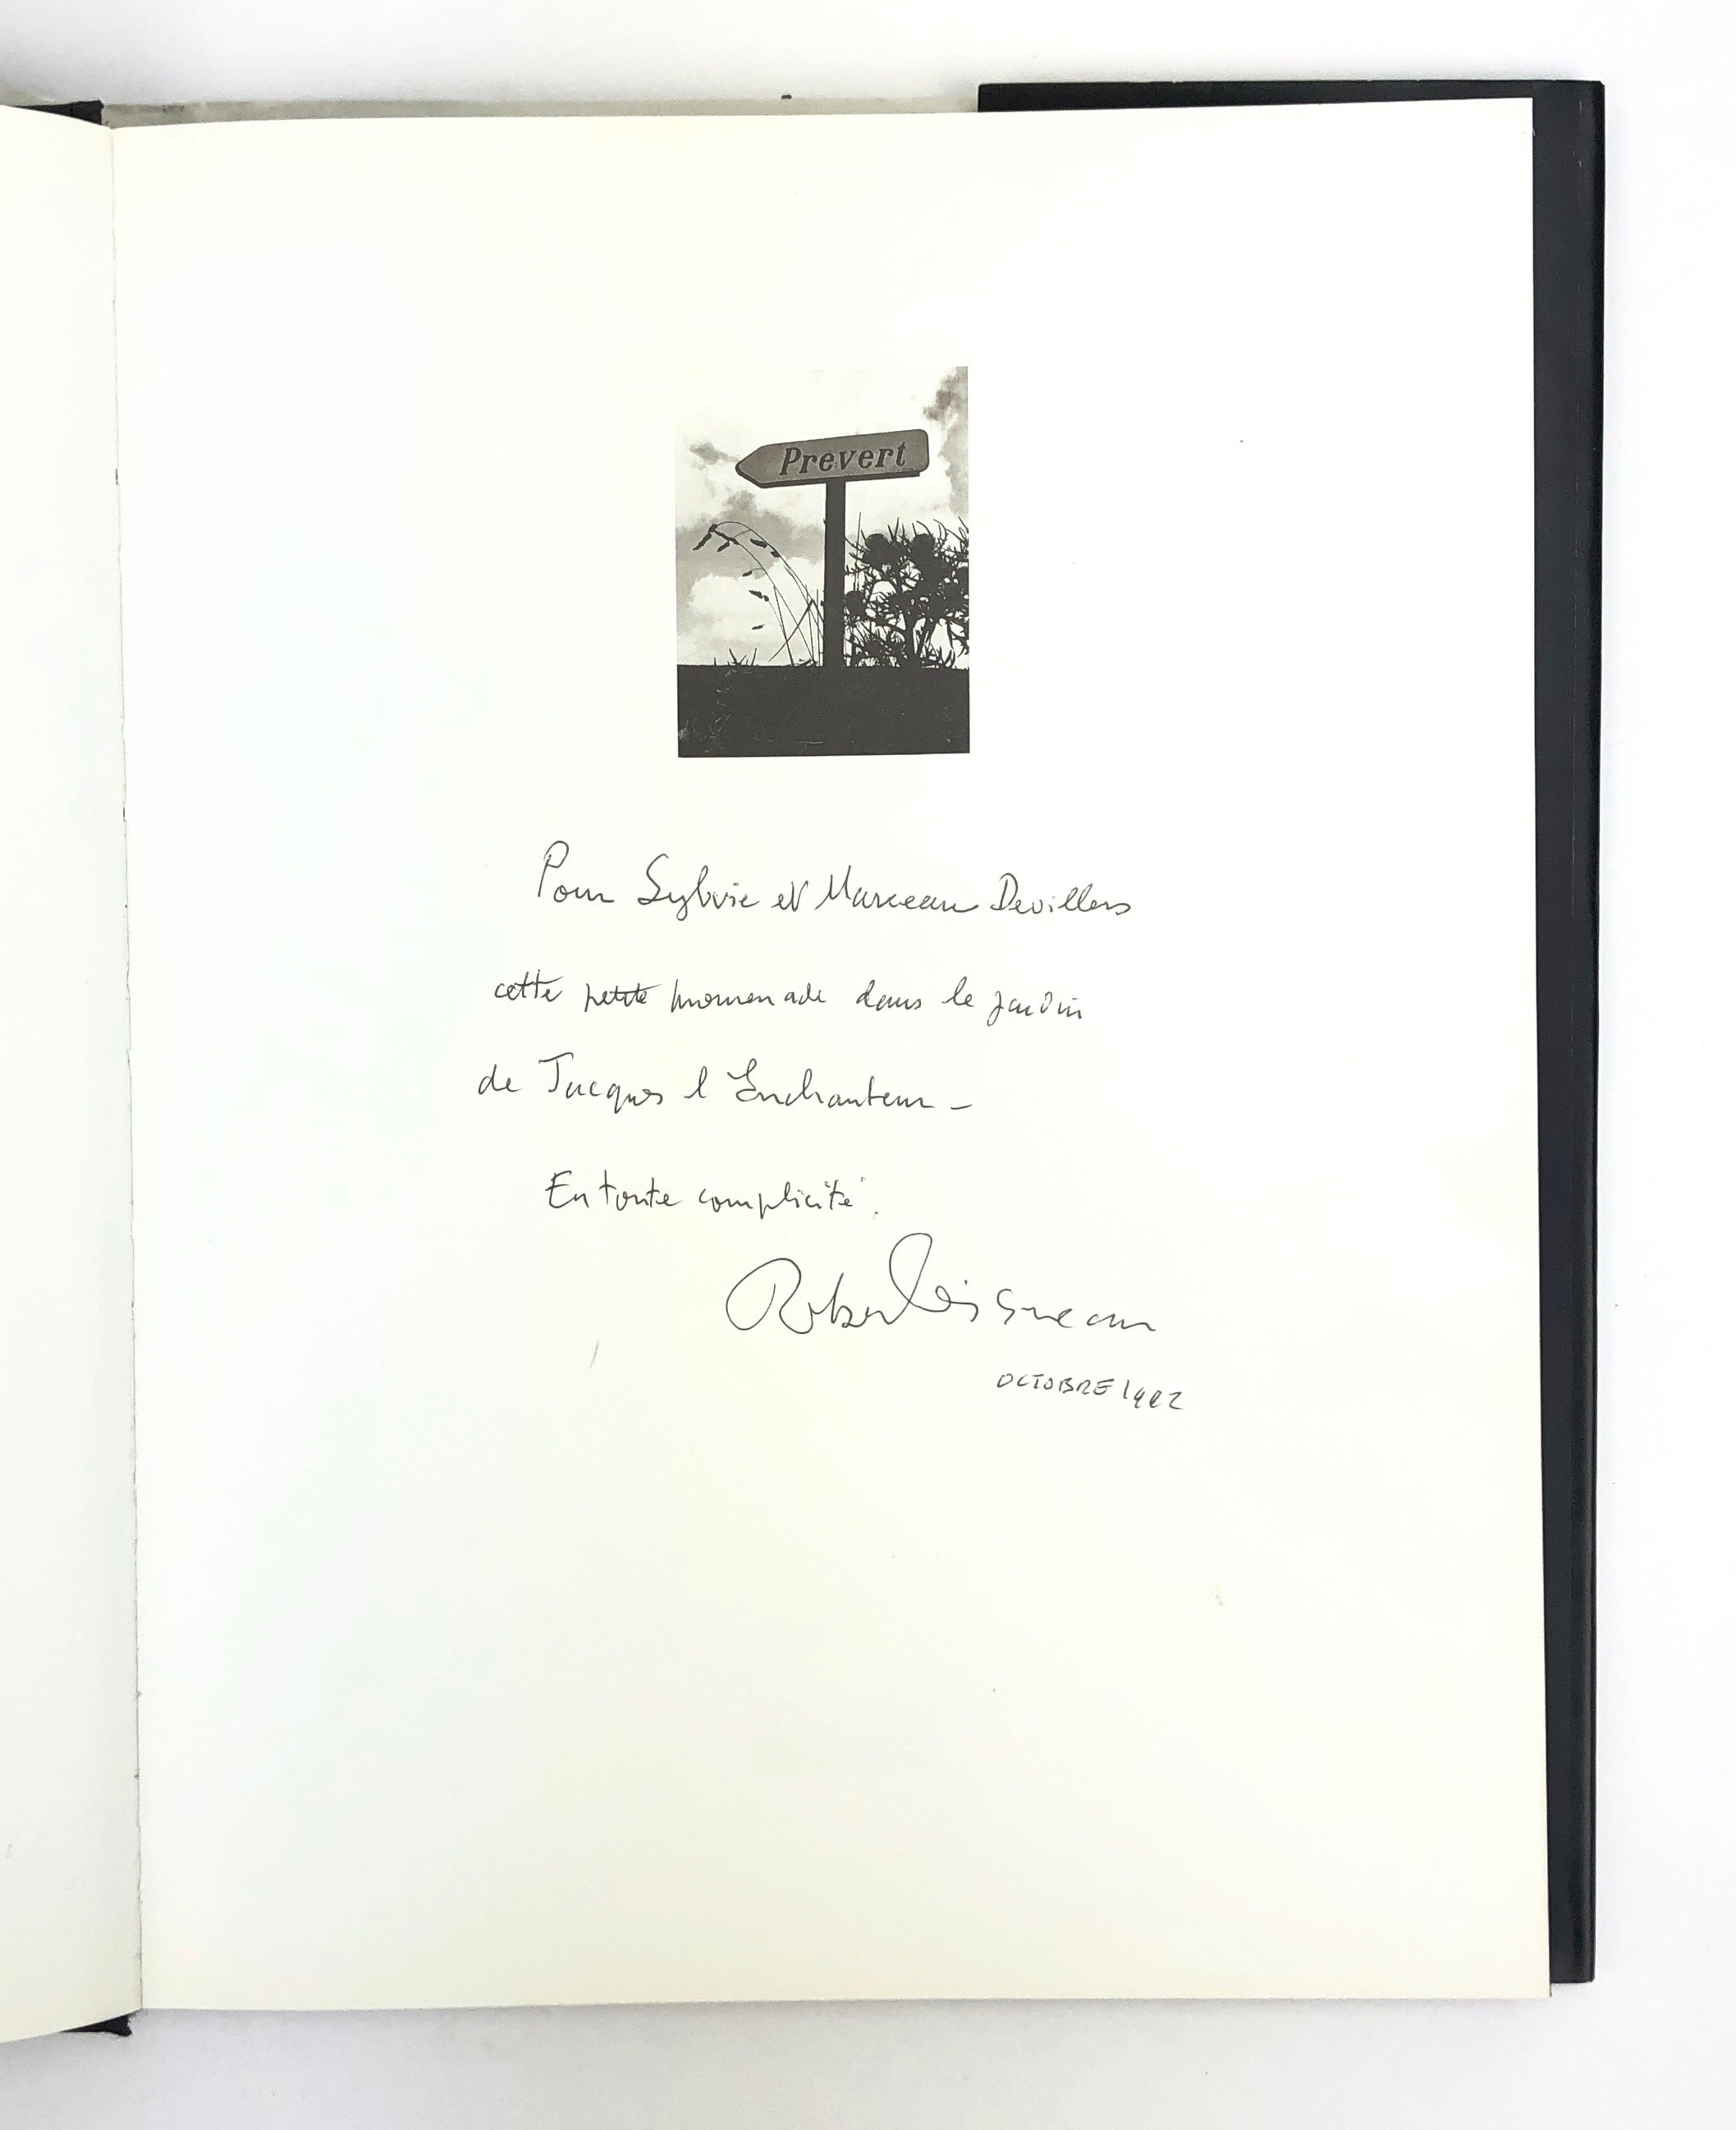 Prevert
Pour Sylvie et Marceau Devillers
cette petite promenade dans le jardin
de Jacques l Enchanteur –
En toute complicité.
Robert Doisneau
OCTOBRE 1992